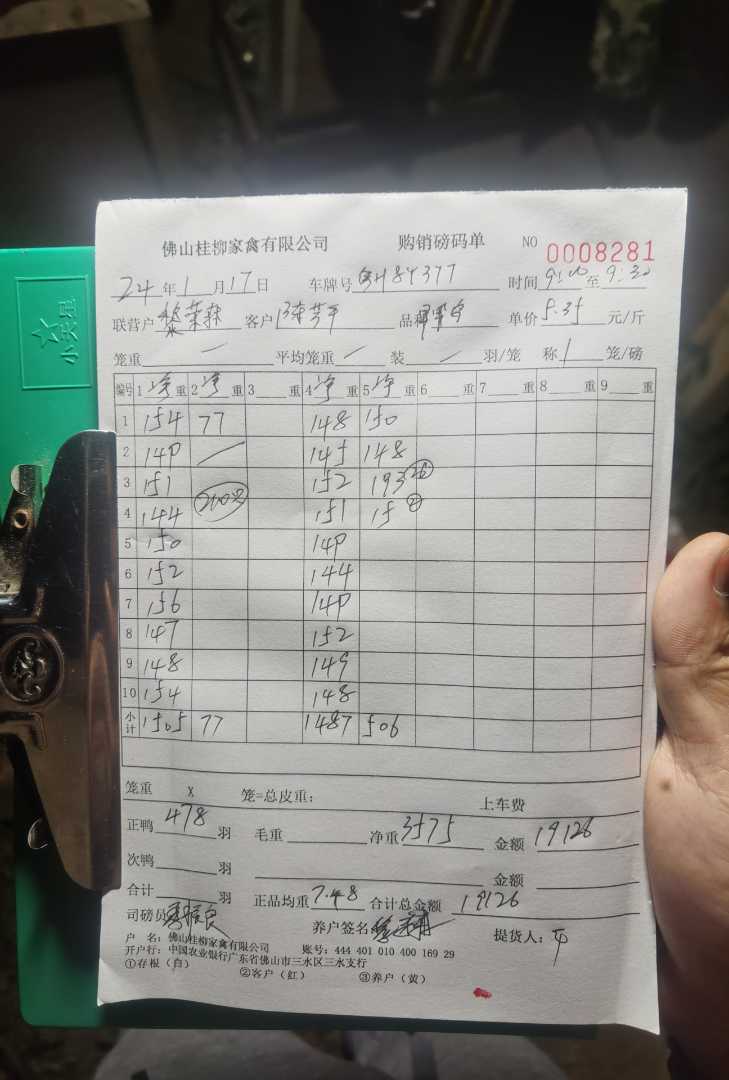 佛山桂柳家禽有限公司 购销磅码单 NO 0008281
24年1月17日 车牌号 时间9:00至9:30
联营户 客户 品种 单价5.35元/斤
笼重 — 平均笼重 — 装 — 羽/笼 称 1 笼/磅
编号 1净重 2净重 3 重 4净重 5净重 6 重 7 重 8 重 9 重
1 154 77 148 150
2 149 — 145 148
3 151 152 193 26
4 144 200只 151 15 2
5 150 149
6 152 144
7 156 149
8 147 152
9 148 149
10 154 148
小计 1505 77 1487 506
笼重 X 笼=总皮重: 上车费
正鸭 478 羽 毛重 净重 3575 金额 19126
次鸭 羽 金额
合计 羽 正品均重 7.48 合计总金额 19126
司磅员 养户签名 提货人:
户 名:佛山桂柳家禽有限公司 账号:444 401 010 400 169 29
开户行:中国农业银行广东省佛山市三水区三水支行
①存根(白) ②客户(红) ③养户(黄)
小天星